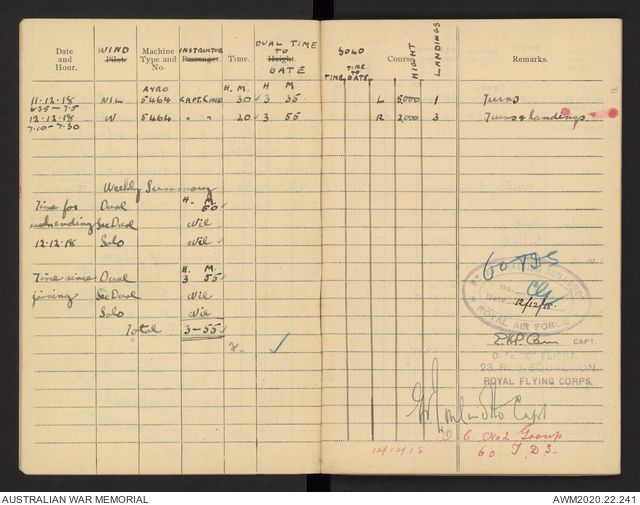 Date and Hour. WIND Pilot. Machine Type and No. INSTRUCTOR Passenger. Time. DUAL TIME TO Height DATE SOLO TIME TIME TO DATE Course HIGHT LANDINGS Remarks.
AVRO H. M. H M
11·12·18 NIL 5464 CAPT. 30 3 35 L 5,000 1 Turns
6·35 – 7·5
12·12·18 W 5464 " " 20 3 55 R 2,000 3 Turns & Landings.
7·10 – 7·30
Weekly Summary
H. M.
Time for Dual 50
week ending Sec Dual Nil
12·12·18 Solo Nil
H. M.
Time since Dual 3 55
joining Sec Dual Nil
Solo Nil
Total 3–55
60 TDS
No.
Date 12/12/18
ROYAL AIR FORCE
CAPT.
"C" FLIGHT
23. SQUADRON.
ROYAL FLYING CORPS.
Capt
O. C. No 2 Group
12/12/18 60 T.D.S.
AUSTRALIAN WAR MEMORIAL AWM2020.22.241